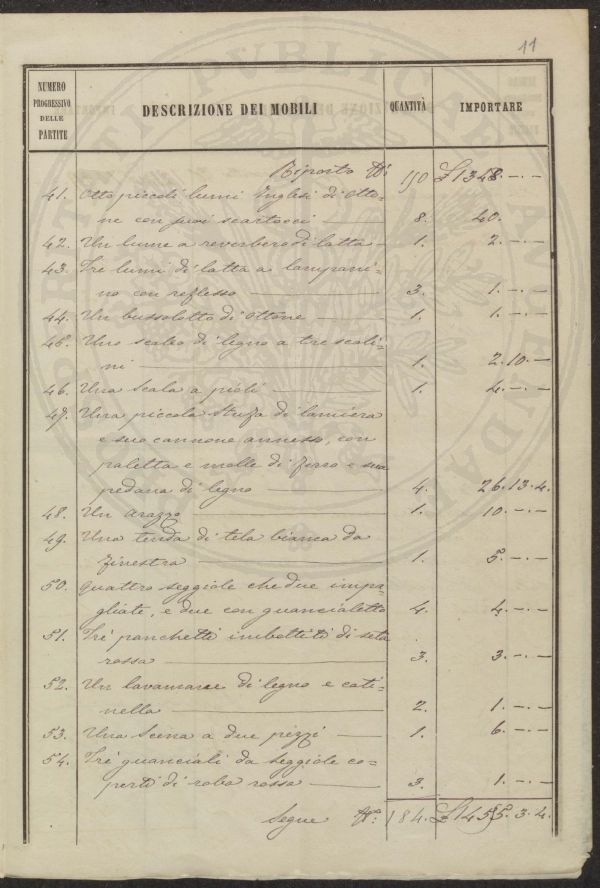 11
NUMERO PROGRESSIVO DELLE PARTITE
DESCRIZIONE DEI MOBILI
QUANTITÀ
IMPORTARE
Riporto N: 150 £1348.-.-
41. Otto piccoli lumi Inglesi di otto=
ne con suoi scartocci 8. 40.
42. Un lume a reverbero di latta 1. 2.-.-
43. Tre lumi di latta a lampani=
no con reflesso 3. 1.-.-
44. Un bussolotto di ottone 1. 1.-
45. Uno scaleo di legno a tre scali=
ni 1. 2.10.-
46. Una Scala a pioli 1. 4.-.-
47. Una piccola Stufa di lamiera
e suo cannone annesso, con
paletta e molle di ferro e sua
pedana di legno 4. 26.13.4.
48. Un arazzo 1. 10.-.-
49. Una tenda di tela bianca da
finestra 1. 5.-.-
50. Quattro seggiole che due impa=
gliate, e due con guancialetto 4. 4.-.-
51. Tre panchetti imbottiti di seta
rossa 3. 3.-.-
52. Un lavamane di legno e cati=
nella 2. 1.-.-
53. Una Scena a due pezzi 1. 6.-.-
54. Tre guanciali da seggiole co=
perti di roba rossa 3. 1.-.-
Segue N: 184. £1455.3.4.